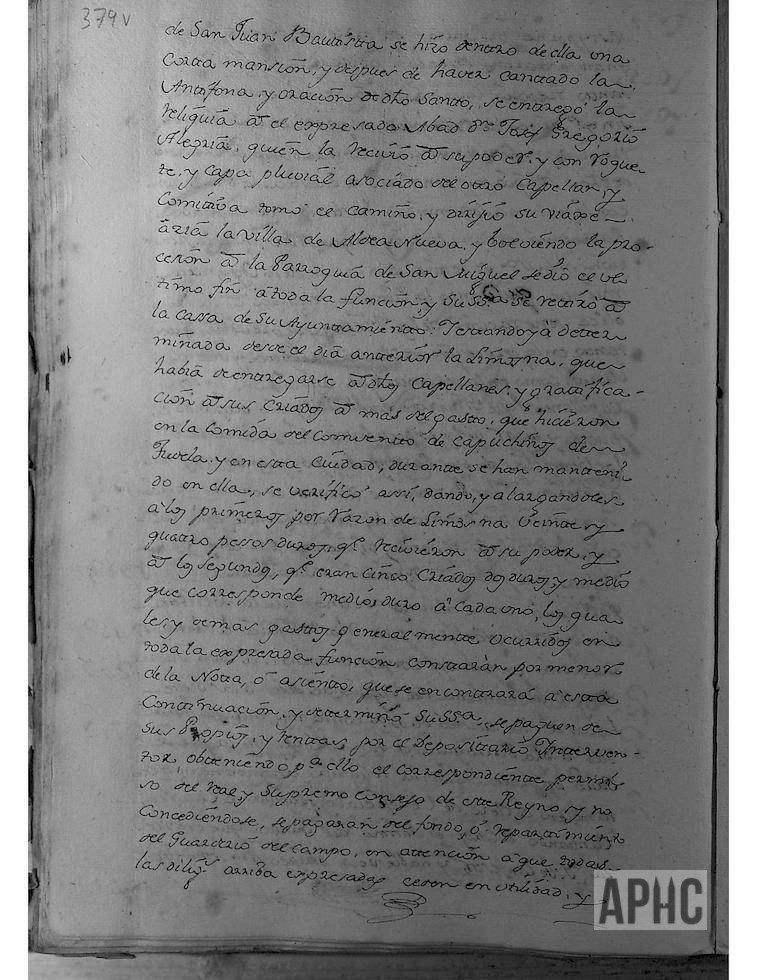 379v
de San Juan Bautista se hizo dentro de ella una
corta mansión, y despues de haver cantado la
Antifona, y oración de dho Santo, se entregó la
reliquia â el expresado Abad Dn. Josef Gregorio
Alegria, quien la recivió â su poder, y con roque-
te, y capa pluvial asociado del otro Capellan, y
Comitiva tomó el camino, y dirijió su viaxe
ázia la villa de Aldea Nueva, y bolviendo la pro-
cesión â la Parroquia de San Miguel se dió el ul-
timo fin á toda la función, y Su Ssa. se retiró â
la cassa de Su Ayuntamiento. Y estando yà deter
minada desde el dia anterior la Limosna, que
habia de entregarse â dhos Capellanes, y gratifica-
ción â sus Criados â mas del gasto, que hicieron
en la comida del combento de capuchinos de
Tudela, y en esta Ciudad, durante se han manteni-
do en ella, se verificó assi, dando, y alargandoles
à los primeros por razon de Limosna veinte y
quatro pessos duros, qe. recivieron â su poder, y
â los segundos, qe. eran cinco Criados dos duros, y medio
que corresponde medio duro à cada uno, los qua
les, y demas gastos generalmente ocurridos en
toda la expresada función constarán por menor
de la Nota, ó asiento, que se encontrará à esta
Continuación, y determinó Su Ssa. se paguen de
sus Propios, y rentas por el Depositario Interven-
tor, obteniendo pa. ello el correspondiente permi-
so del Real y Supremo Consejo de este Reyno, y no
Concediéndose, se pagarán del fondo, ó repartimiento
del Guarderio del campo, en attención à que todas
las dilixs. arriba expresadas ceden en utilidad, y
APHC